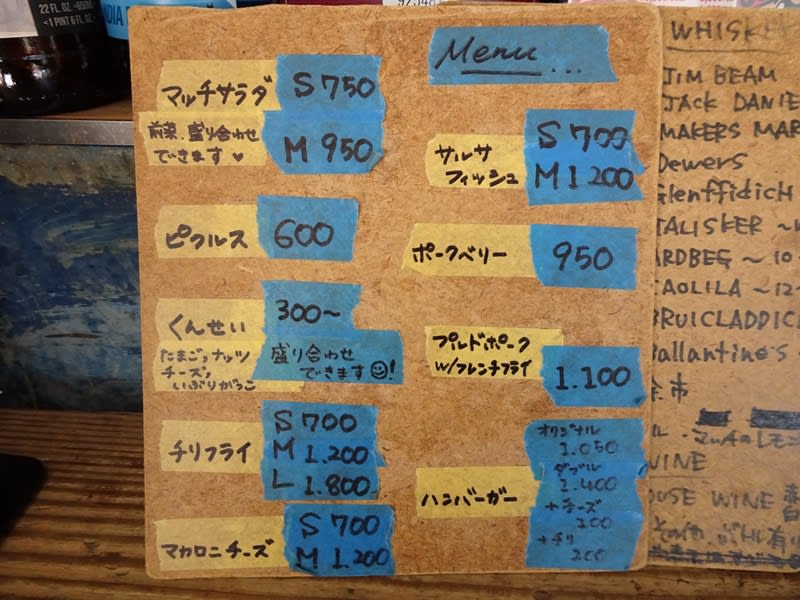 22 FL. OZ.
<1 PINT 6 FL. OZ.
Menu...
マッチサラダ S 750
前菜.盛り合わせ
できます♥ M 950
ピクルス 600
くんせい 300~
たまご,ナッツ
チーズ,
いぶりがっこ
盛り合わせ
できます☺!
チリフライ S 700
M 1.200
L 1.800
マカロニチーズ S 700
M 1.200
サルサ
フィッシュ
S 700
M 1.200
ポークベリー 950
プルドポーク
W/フレンチフライ 1.100
ハンバーガー
オリジナル
1.050
ダブル
1.400
+チーズ
+チリ
200
WHISKE
JIM BEAM
JACK DANIE
MAKERS MAR
Dewers
Glenffidich
TALISKER ~
ARDBEG ~10
CAOLILA ~12
BRUICLADDIC
Ballantine's
余市
WINE
OUSE WINE